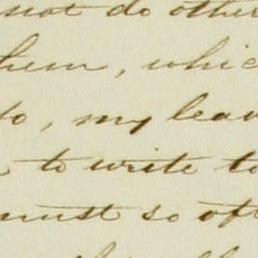 not do other
them, which
do, my leav
to write to
must so oft